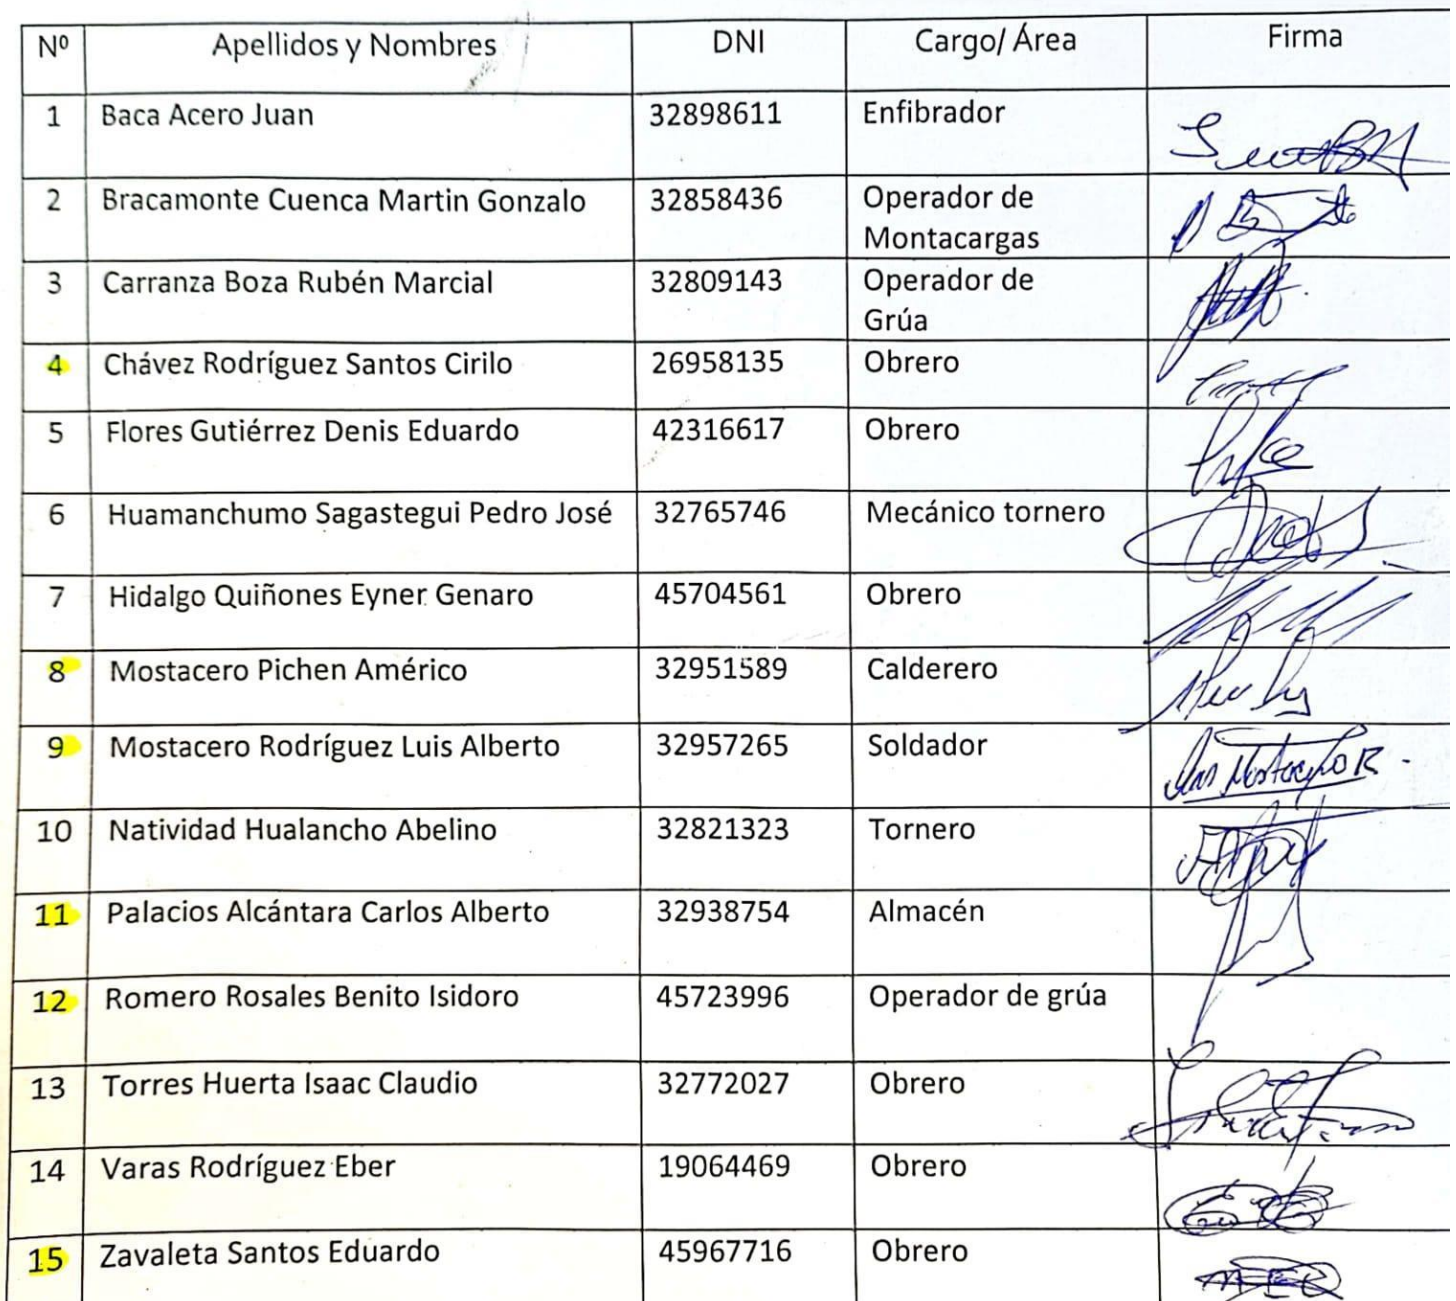 Nº Apellidos y Nombres DNI Cargo/ Área Firma
1 Baca Acero Juan 32898611 Enfibrador
2 Bracamonte Cuenca Martin Gonzalo 32858436 Operador de
Montacargas
3 Carranza Boza Rubén Marcial 32809143 Operador de
Grúa
4 Chávez Rodríguez Santos Cirilo 26958135 Obrero
5 Flores Gutiérrez Denis Eduardo 42316617 Obrero
6 Huamanchumo Sagastegui Pedro José 32765746 Mecánico tornero
7 Hidalgo Quiñones Eyner Genaro 45704561 Obrero
8 Mostacero Pichen Américo 32951589 Calderero
9 Mostacero Rodríguez Luis Alberto 32957265 Soldador
10 Natividad Hualancho Abelino 32821323 Tornero
11 Palacios Alcántara Carlos Alberto 32938754 Almacén
12 Romero Rosales Benito Isidoro 45723996 Operador de grúa
13 Torres Huerta Isaac Claudio 32772027 Obrero
14 Varas Rodríguez Eber 19064469 Obrero
15 Zavaleta Santos Eduardo 45967716 Obrero